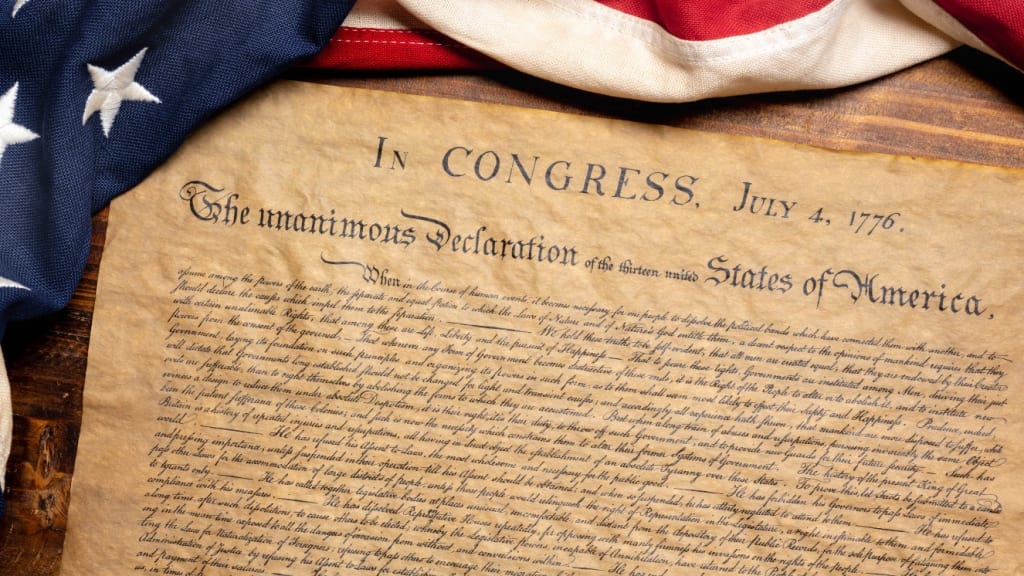 In CONGRESS, July 4, 1776.
The unanimous Declaration of the thirteen united States of America.
When in the Course of human events, it becomes necessary for one people to dissolve the political bands which have connected them with another, and to
assume among the powers of the earth, the separate and equal station to which the Laws of Nature and of Nature's God entitle them, a decent respect to the opinions of mankind requires that they
should declare the causes which impel them to the separation. — We hold these truths to be self-evident, that all men are created equal, that they are endowed by their Creator
with certain unalienable Rights, that among these are Life, Liberty and the pursuit of Happiness. — That to secure these rights, Governments are instituted among Men, deriving their just
powers from the consent of the governed, — That whenever any Form of Government becomes destructive of these ends, it is the Right of the People to alter or to abolish it, and to institute new
Government, laying its foundation on such principles and organizing its powers in such form, as to them shall seem most likely to effect their Safety and Happiness. Prudence, indeed,
will dictate that Governments long established should not be changed for light and transient causes; and accordingly all experience hath shewn, that mankind are more disposed to suffer, while
evils are sufferable, than to right themselves by abolishing the forms to which they are accustomed. But when a long train of abuses and usurpations, pursuing invariably the same Object
evinces a design to reduce them under absolute Despotism, it is their right, it is their duty, to throw off such Government, and to provide new Guards for their future security. — Such has
been the patient sufferance of these Colonies; and such is now the necessity which constrains them to alter their former Systems of Government. The history of the present King of Great
Britain is a history of repeated injuries and usurpations, all having in direct object the establishment of an absolute Tyranny over these States. To prove this, let Facts be submitted to a candid
world. — He has refused his Assent to Laws, the most wholesome and necessary for the public good. — He has forbidden his Governors to pass Laws of immediate
and pressing importance, unless suspended in their operation till his Assent should be obtained; and when so suspended, he has utterly neglected to attend to them. — He has refused to
pass other Laws for the accommodation of large districts of people, unless those people would relinquish the right of Representation in the Legislature, a right inestimable to them and formidable
to tyrants only. — He has called together legislative bodies at places unusual, uncomfortable, and distant from the depository of their public Records, for the sole purpose of fatiguing them into
compliance with his measures. — He has dissolved Representative Houses repeatedly, for opposing with manly firmness his invasions on the rights of the people. — He has refused for a
long time after such dissolutions, to cause others to be elected; whereby the Legislative powers, incapable of Annihilation, have returned to the People